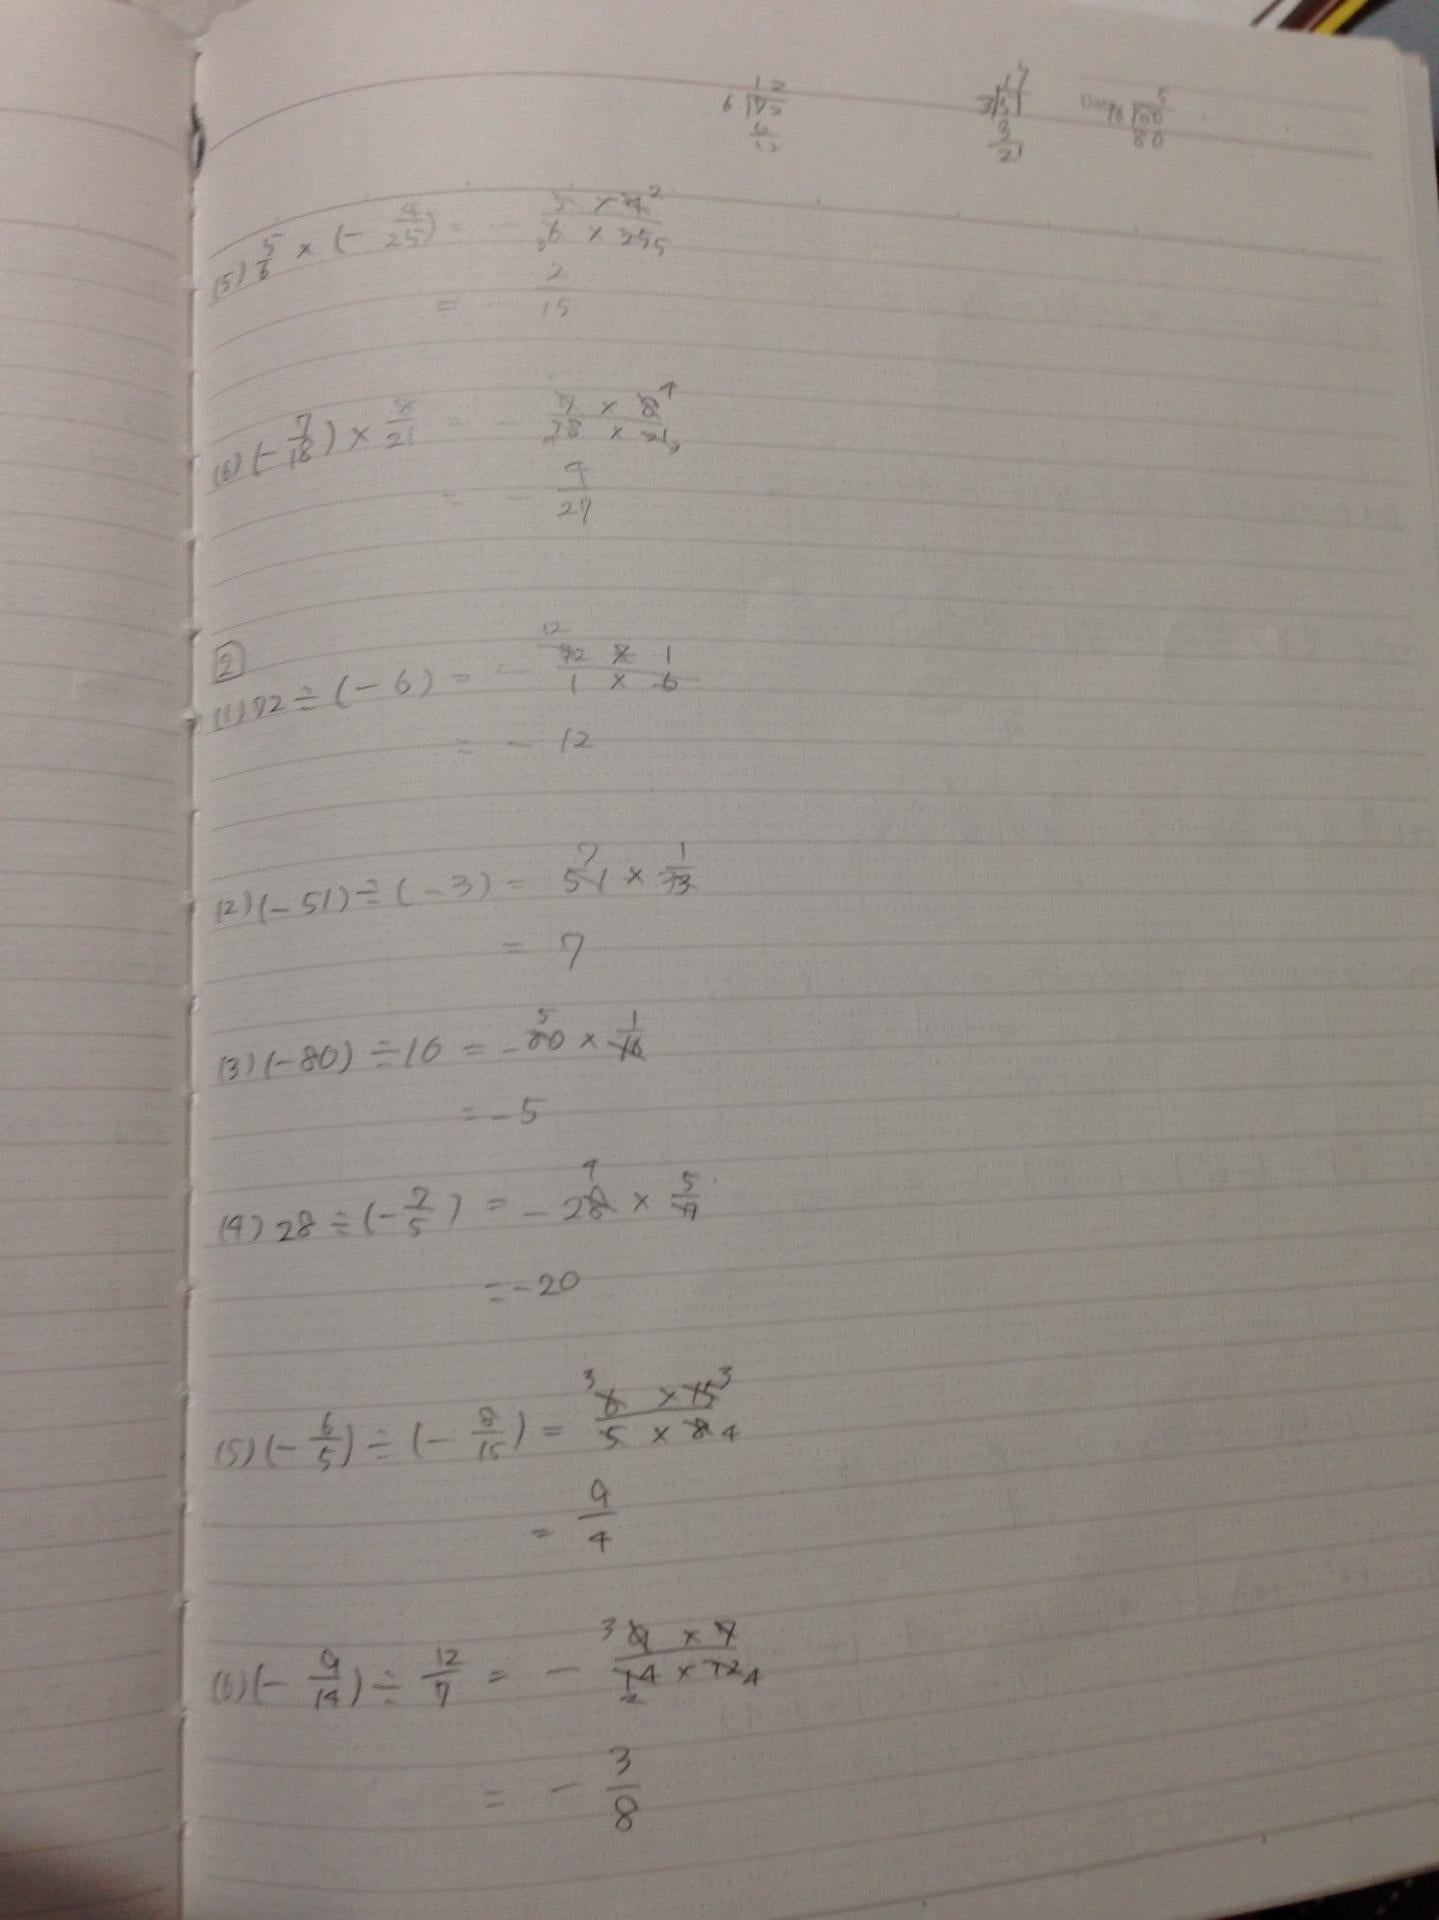 12
6)72
6
12
17
3)51
3
21
Date
5
16)80
80
(5) 5/6 × (- 4/25) = - 5 × 4 2 / 3 6 × 25 5
= - 2/15
(6) (- 7/18) × 8/21 = - 7 × 8 4 / 18 × 21 3
= - 4/27
2
(1) 72 ÷ (- 6) = - 12 72 × 1 / 1 × 6
= - 12
(2) (- 51) ÷ (- 3) = 7 51 × 1/3
= 7
(3) (- 80) ÷ 16 = - 5 80 × 1/16
= - 5
(4) 28 ÷ (- 7/5) = - 4 28 × 5/7
= - 20
(5) (- 6/5) ÷ (- 8/15) = 3 6 × 15 3 / 5 × 8 4
= 9/4
(6) (- 9/14) ÷ 12/7 = - 3 9 × 7 / 2 14 × 12 4
= - 3/8